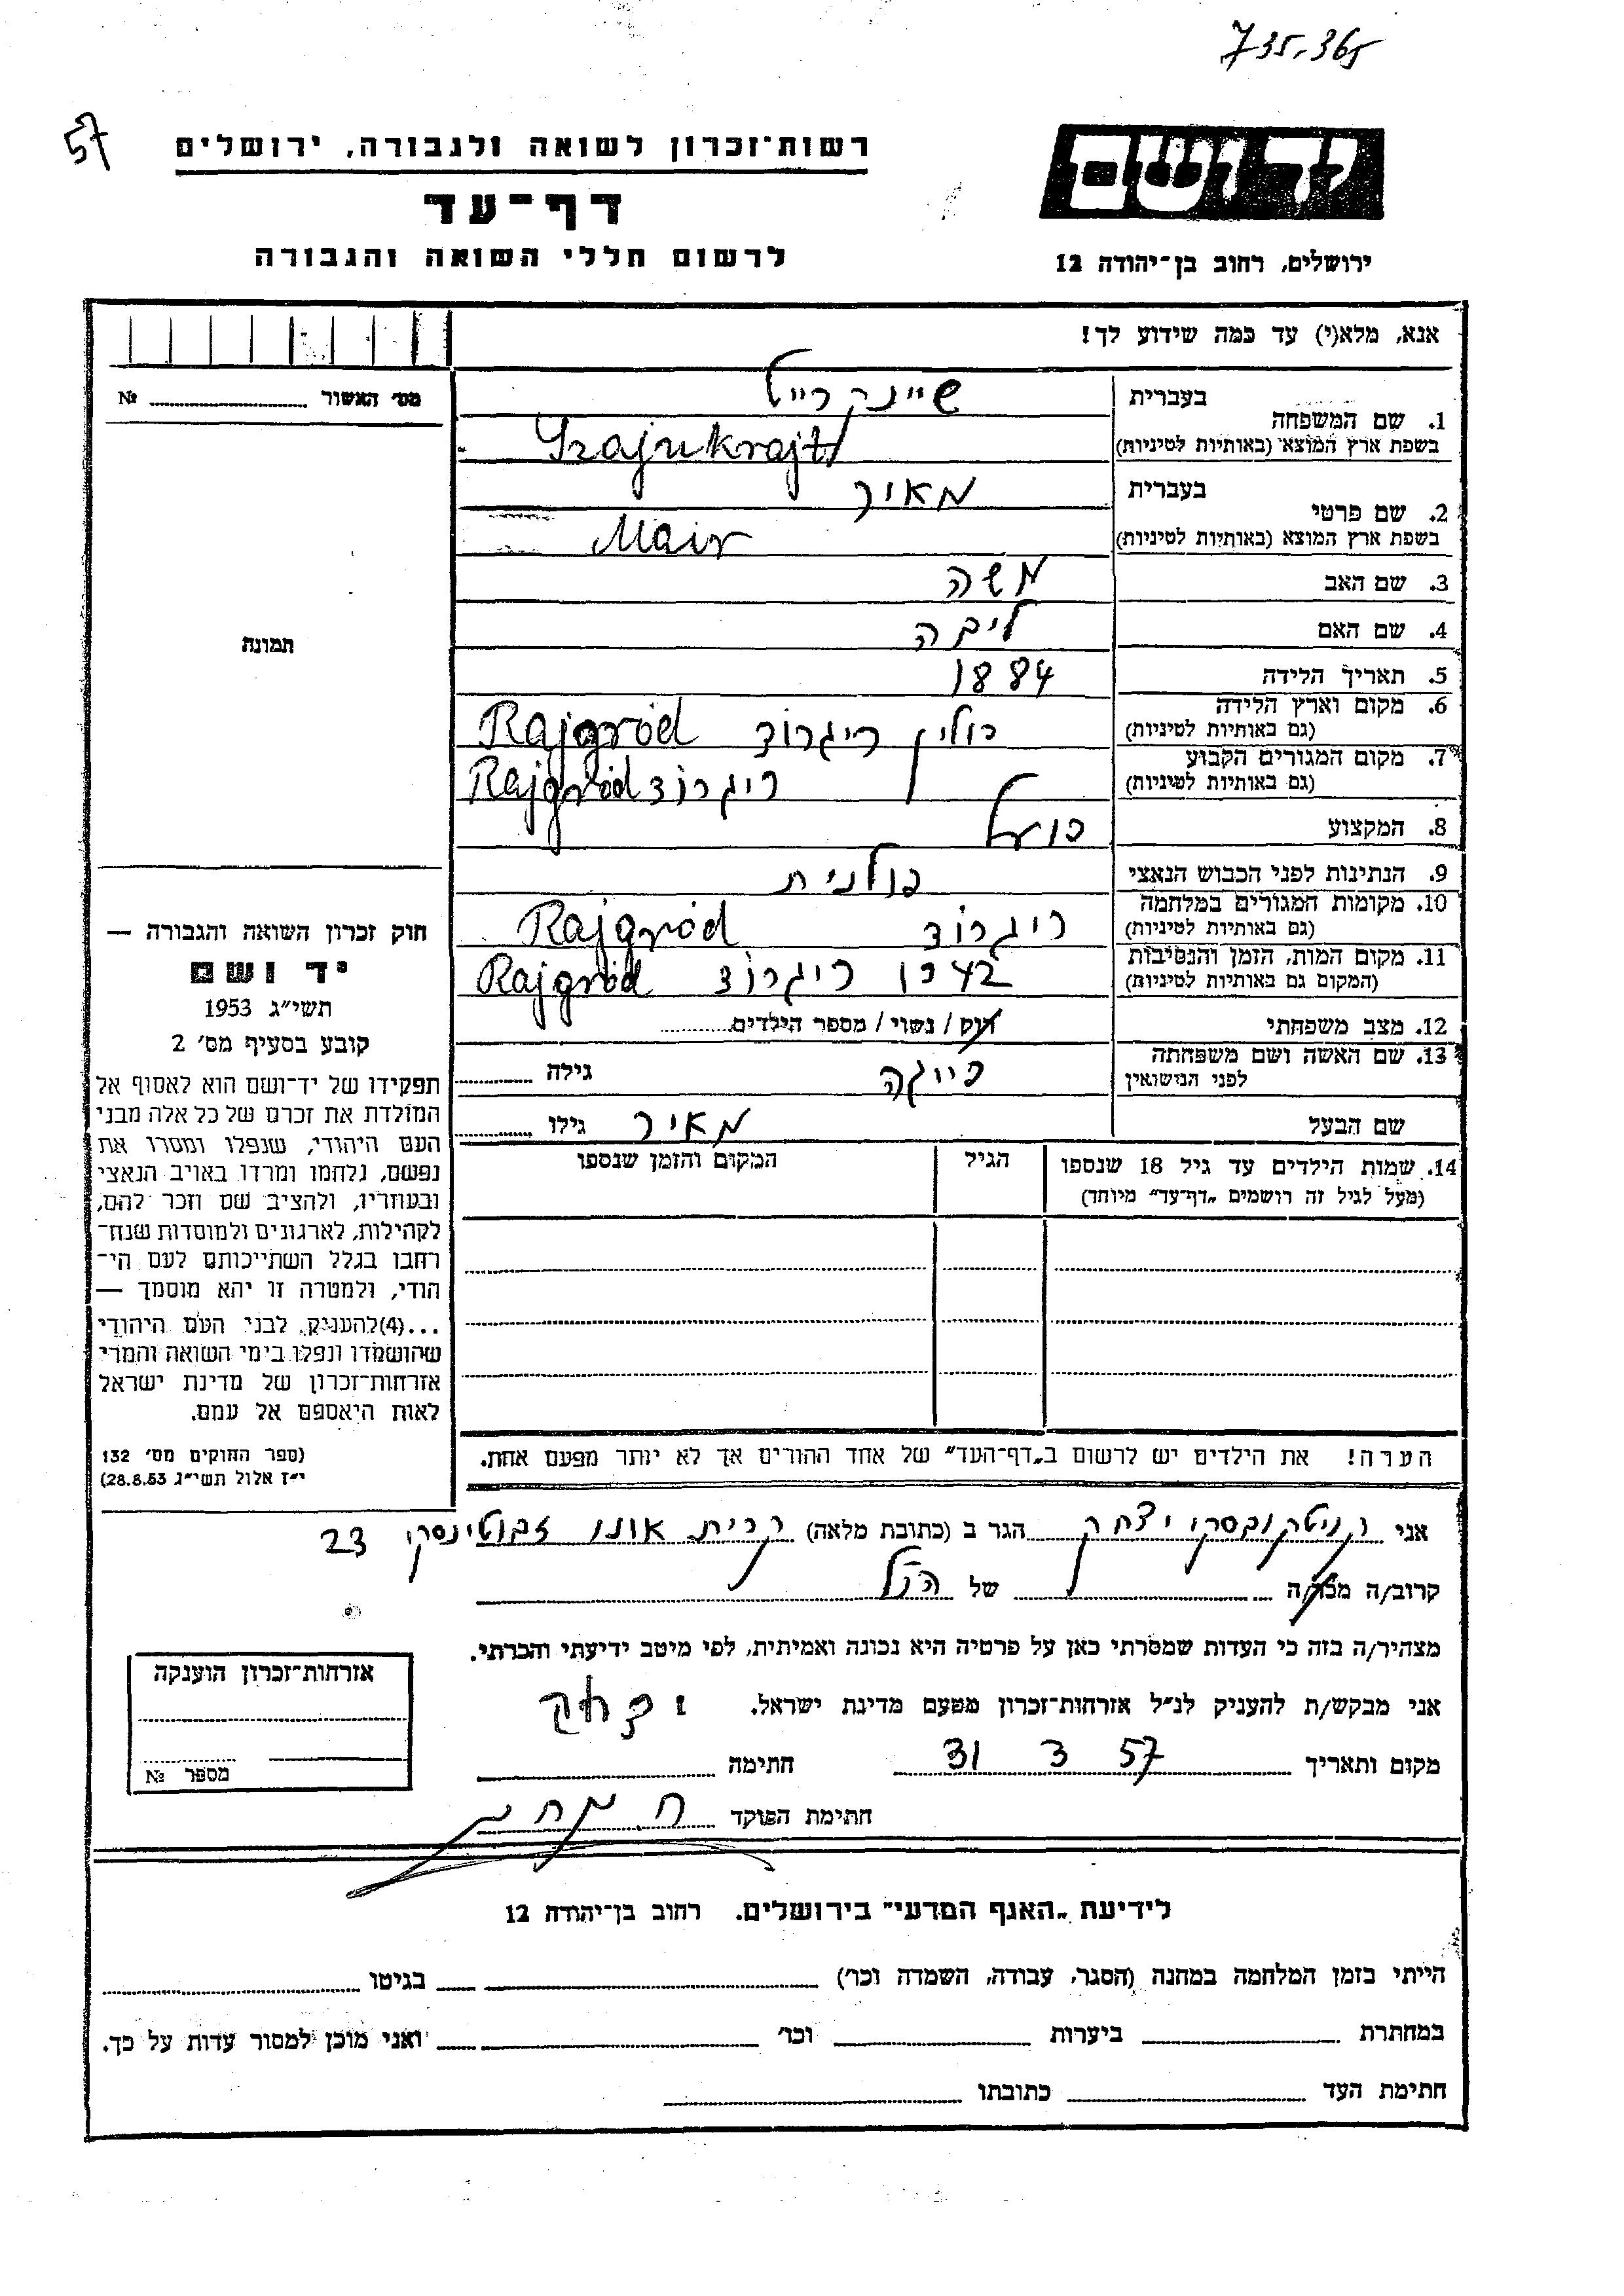 735.365
57
רשות־זכרון לשואה ולגבורה, ירושלים
דף־עד
לרשום חללי השואה והגבורה
ידושם
ירושלים, רחוב בן־יהודה 12
אנא, מלא(י) עד כמה שידוע לך!
מס׳ האשור № 
1. שם המשפחה
בעברית שיינקרייט
בשפת ארץ המוצא (באותיות לטיניות) Szajnkrajt
2. שם פרטי
בעברית מאיר
בשפת ארץ המוצא (באותיות לטיניות) Mair
3. שם האב משה
4. שם האם ליבה
5. תאריך הלידה 1884
6. מקום וארץ הלידה פולין ריגרוד Rajgród
(גם באותיות לטיניות)
7. מקום המגורים הקבוע ריגרוד Rajgród
(גם באותיות לטיניות)
8. המקצוע פועל
9. הנתינות לפני הכבוש הנאצי פולנית
10. מקומות המגורים במלחמה ריגרוד Rajgród
(גם באותיות לטיניות)
11. מקום המות, הזמן והנסיבות 1942 ריגרוד Rajgród
(המקום גם באותיות לטיניות)
12. מצב משפחתי רוק / נשוי / מספר הילדים
13. שם האשה ושם משפחתה פייגה גילה
לפני הנישואין
שם הבעל מאיר גילו
14. שמות הילדים עד גיל 18 שנספו
(מעל לגיל זה רושמים „דף־עד״ מיוחד)
הגיל
המקום והזמן שנספו
הערה! את הילדים יש לרשום ב„דף־העד״ של אחד ההורים אך לא יותר מפעם אחת.
תמונה
חוק זכרון השואה והגבורה —
יד ושם
תשי״ג 1953
קובע בסעיף מס׳ 2
תפקידו של יד־ושם הוא לאסוף אל
המולדת את זכרם של כל אלה מבני
העם היהודי, שנפלו ומסרו את
נפשם, נלחמו ומרדו באויב הנאצי
ובעוזריו, ולהציב שם וזכר להם,
לקהילות, לארגונים ולמוסדות שנח־
רבו בגלל השתייכותם לעם הי־
הודי, ולמטרה זו יהא מוסמך —
...(4)להעניק לבני העם היהודי
שהושמדו ונפלו בימי השואה והמרי
אזרחות־זכרון של מדינת ישראל
לאות היאספם אל עמם.
(ספר החוקים מס׳ 132
י״ז אלול תשי״ג 28.8.53)
אני קויטקובסקי יצחק הגר ב (כתובת מלאה) קרית אונו זבוטינסקי 23
קרוב/ה מכר/ה של הנ״ל
מצהיר/ה בזה כי העדות שמסרתי כאן על פרטיה היא נכונה ואמיתית, לפי מיטב ידיעתי והכרתי.
אני מבקש/ת להעניק לנ״ל אזרחות־זכרון מטעם מדינת ישראל. יצחק
מקום ותאריך 57 3 31 חתימה
חתימת הפוקד
אזרחות־זכרון הוענקה
מספר №
לידיעת „האגף המדעי״ בירושלים. רחוב בן־יהודה 12
הייתי בזמן המלחמה במחנה (הסגר, עבודה, השמדה וכו׳) בגיטו
במחתרת ביערות וכו׳ ואני מוכן למסור עדות על כך.
חתימת העד כתובתו